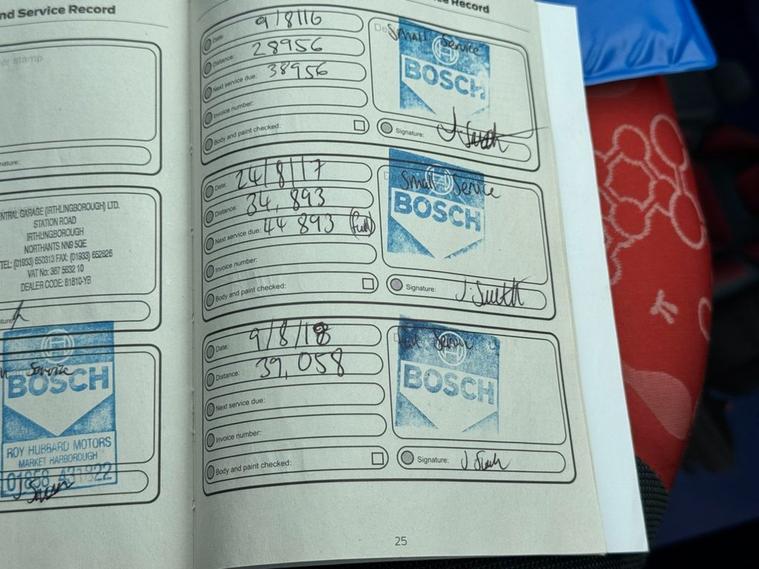 nd Service Record
er stamp
nature:
ENTRAL GARAGE (IRTHLINGBOROUGH) LTD.
STATION ROAD
IRTHLINGBOROUGH
NORTHANTS NN9 5QE
TEL: (01933) 650313 FAX: (01933) 652826
VAT No: 367 5632 10
DEALER CODE: 61810-YB
Service
BOSCH
ROY HUBBARD MOTORS
MARKET HARBOROUGH
ce Record
Date: 9/8/16
Distance: 28956
Next service due: 38956
Invoice number:
Body and paint checked:
Small Service
BOSCH
Signature: J. Smith
Date: 24/8/17
Distance: 34,893
Next service due: 44 893 (Full)
Invoice number:
Body and paint checked:
Small Service
BOSCH
Signature: J. Smith
Date: 9/8/18
Distance: 39,058
Next service due:
Invoice number:
Body and paint checked:
Service
BOSCH
Signature:
25